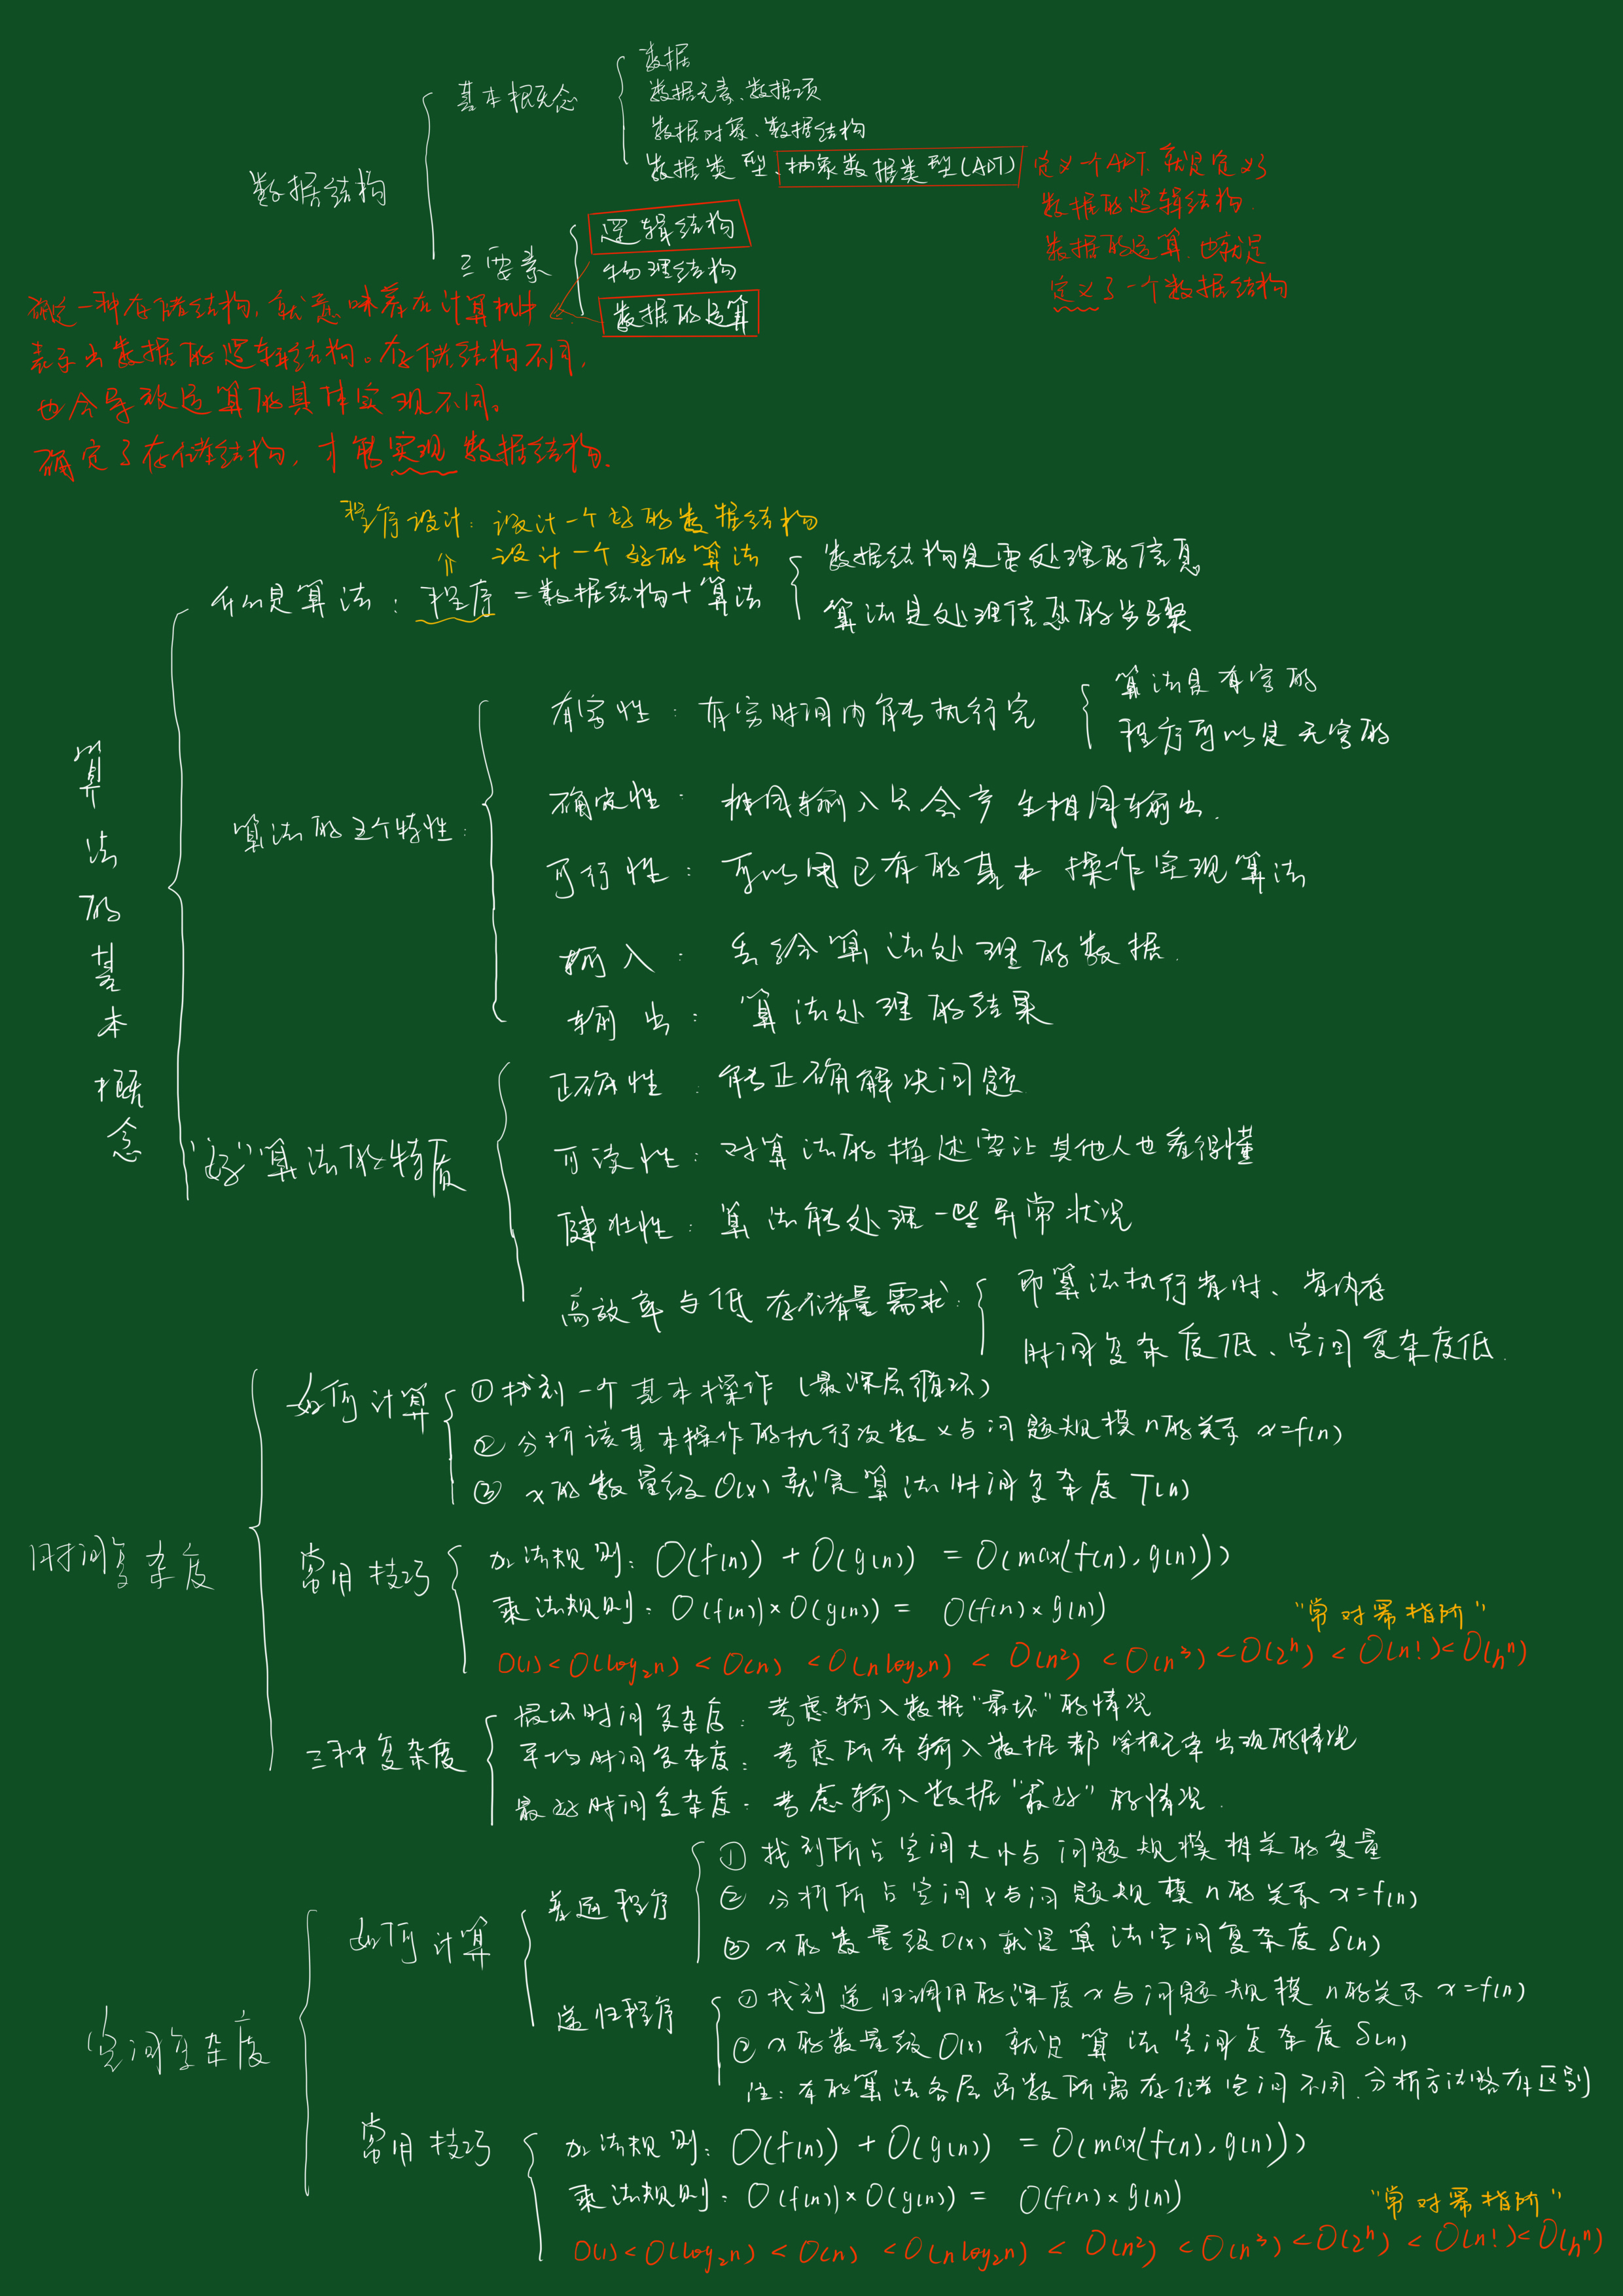 数据结构
基本概念
数据
数据元素、数据项
数据对象、数据结构
数据类型、抽象数据类型(ADT)
定义一个ADT,就是定义了
数据的逻辑结构.
数据的运算.也就是
定义了一个数据结构
三要素
逻辑结构
物理结构
数据的运算
确定一种存储结构,就意味着在计算机中
表示出数据的逻辑结构。存储结构不同,
也会导致运算的具体实现不同。
确定了存储结构,才能实现数据结构.
算法的基本概念
程序设计:设计一个好的数据结构
⇑ 设计一个好的算法
什么是算法:程序=数据结构+算法
数据结构是要处理的信息
算法是处理信息的步骤
算法的五个特性:
有穷性:有穷时间内能执行完
算法是有穷的
程序可以是无穷的
确定性:相同输入只会产生相同输出.
可行性:可以用已有的基本操作实现算法
输入:丢给算法处理的数据.
输出:算法处理的结果
"好"算法的特质
正确性:能正确解决问题
可读性:对算法的描述要让其他人也看得懂
健壮性:算法能处理一些异常状况
高效率与低存储量需求:
即算法执行省时、省内存
时间复杂度低、空间复杂度低.
时间复杂度
如何计算
①找到一个基本操作(最深层循环)
②分析该基本操作的执行次数x与问题规模n的关系 x=f(n)
③x的数量级O(x)就是算法时间复杂度T(n)
常用技巧
加法规则:O(f(n))+O(g(n))=O(max(f(n),g(n)))
乘法规则:O(f(n))×O(g(n))=O(f(n)×g(n))
"常对幂指阶"
O(1)<O(log₂n)<O(n)<O(nlog₂n)<O(n²)<O(n³)<O(2ⁿ)<O(n!)<O(nⁿ)
三种复杂度
最坏时间复杂度:考虑输入数据"最坏"的情况
平均时间复杂度:考虑所有输入数据都等概率出现的情况
最好时间复杂度:考虑输入数据"最好"的情况.
空间复杂度
如何计算
普通程序
①找到所占空间大小与问题规模相关的变量
②分析所占空间x与问题规模n的关系 x=f(n)
③x的数量级O(x)就是算法空间复杂度S(n)
递归程序
①找到递归调用的深度x与问题规模n的关系 x=f(n)
②x的数量级O(x)就是算法空间复杂度S(n)
注:有的算法各层函数所需存储空间不同.分析方法略有区别
常用技巧
加法规则:O(f(n))+O(g(n))=O(max(f(n),g(n)))
乘法规则:O(f(n))×O(g(n))=O(f(n)×g(n))
"常对幂指阶"
O(1)<O(log₂n)<O(n)<O(nlog₂n)<O(n²)<O(n³)<O(2ⁿ)<O(n!)<O(nⁿ)